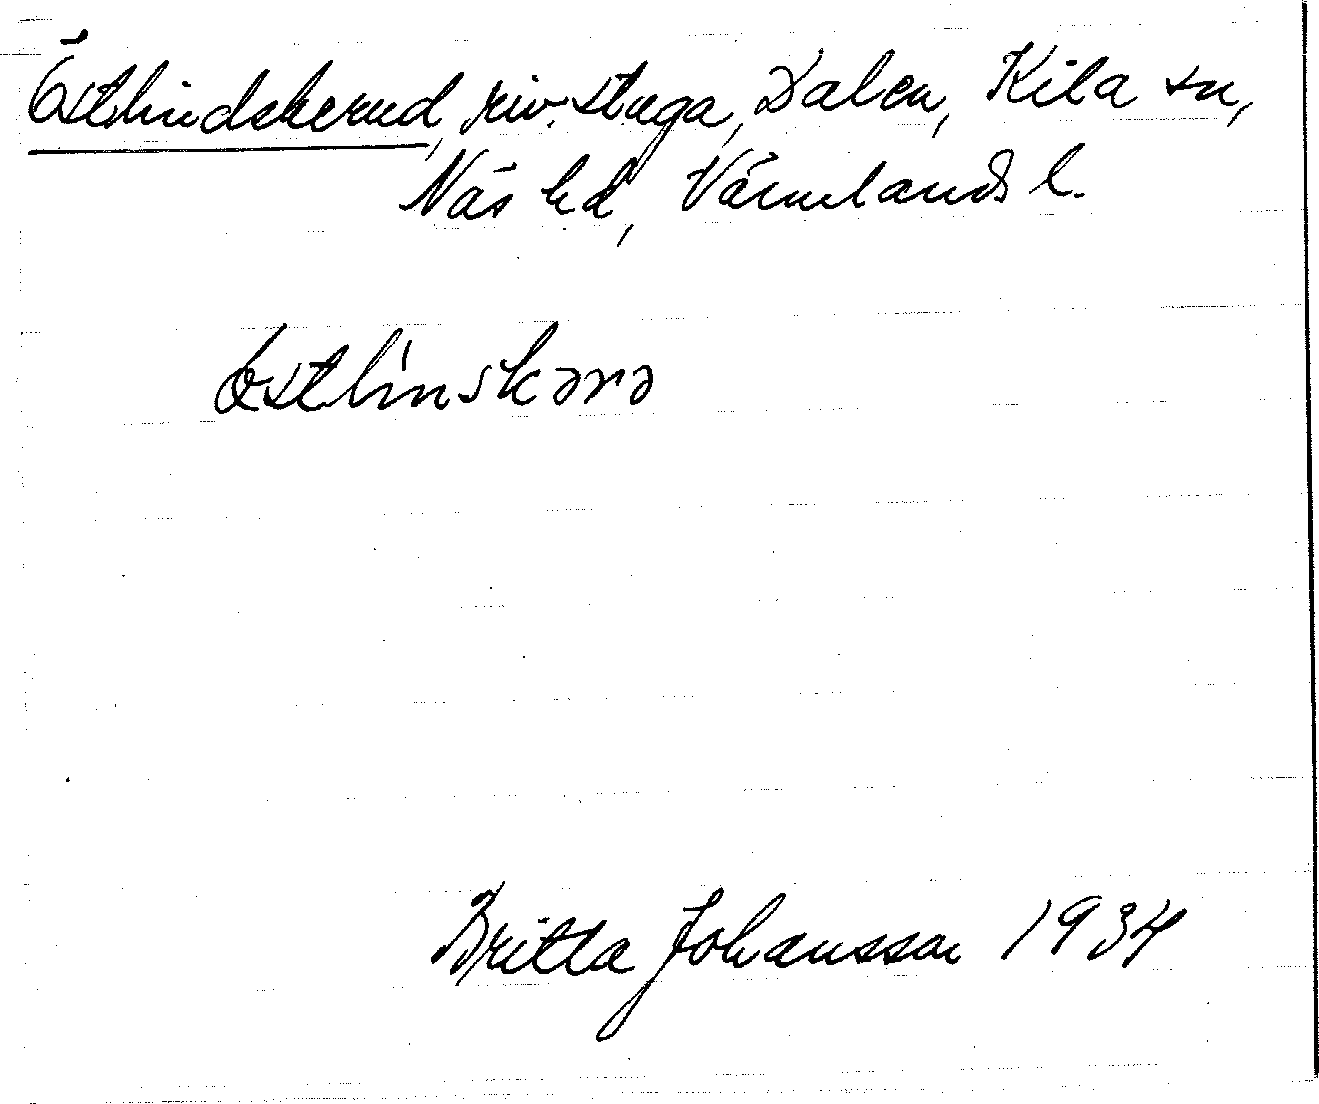 Östlindskerud, riv. stuga, Dalen, Kila sn,
Näs hd, Värmlands l.
östlinskərə
Britta Johansson 1934